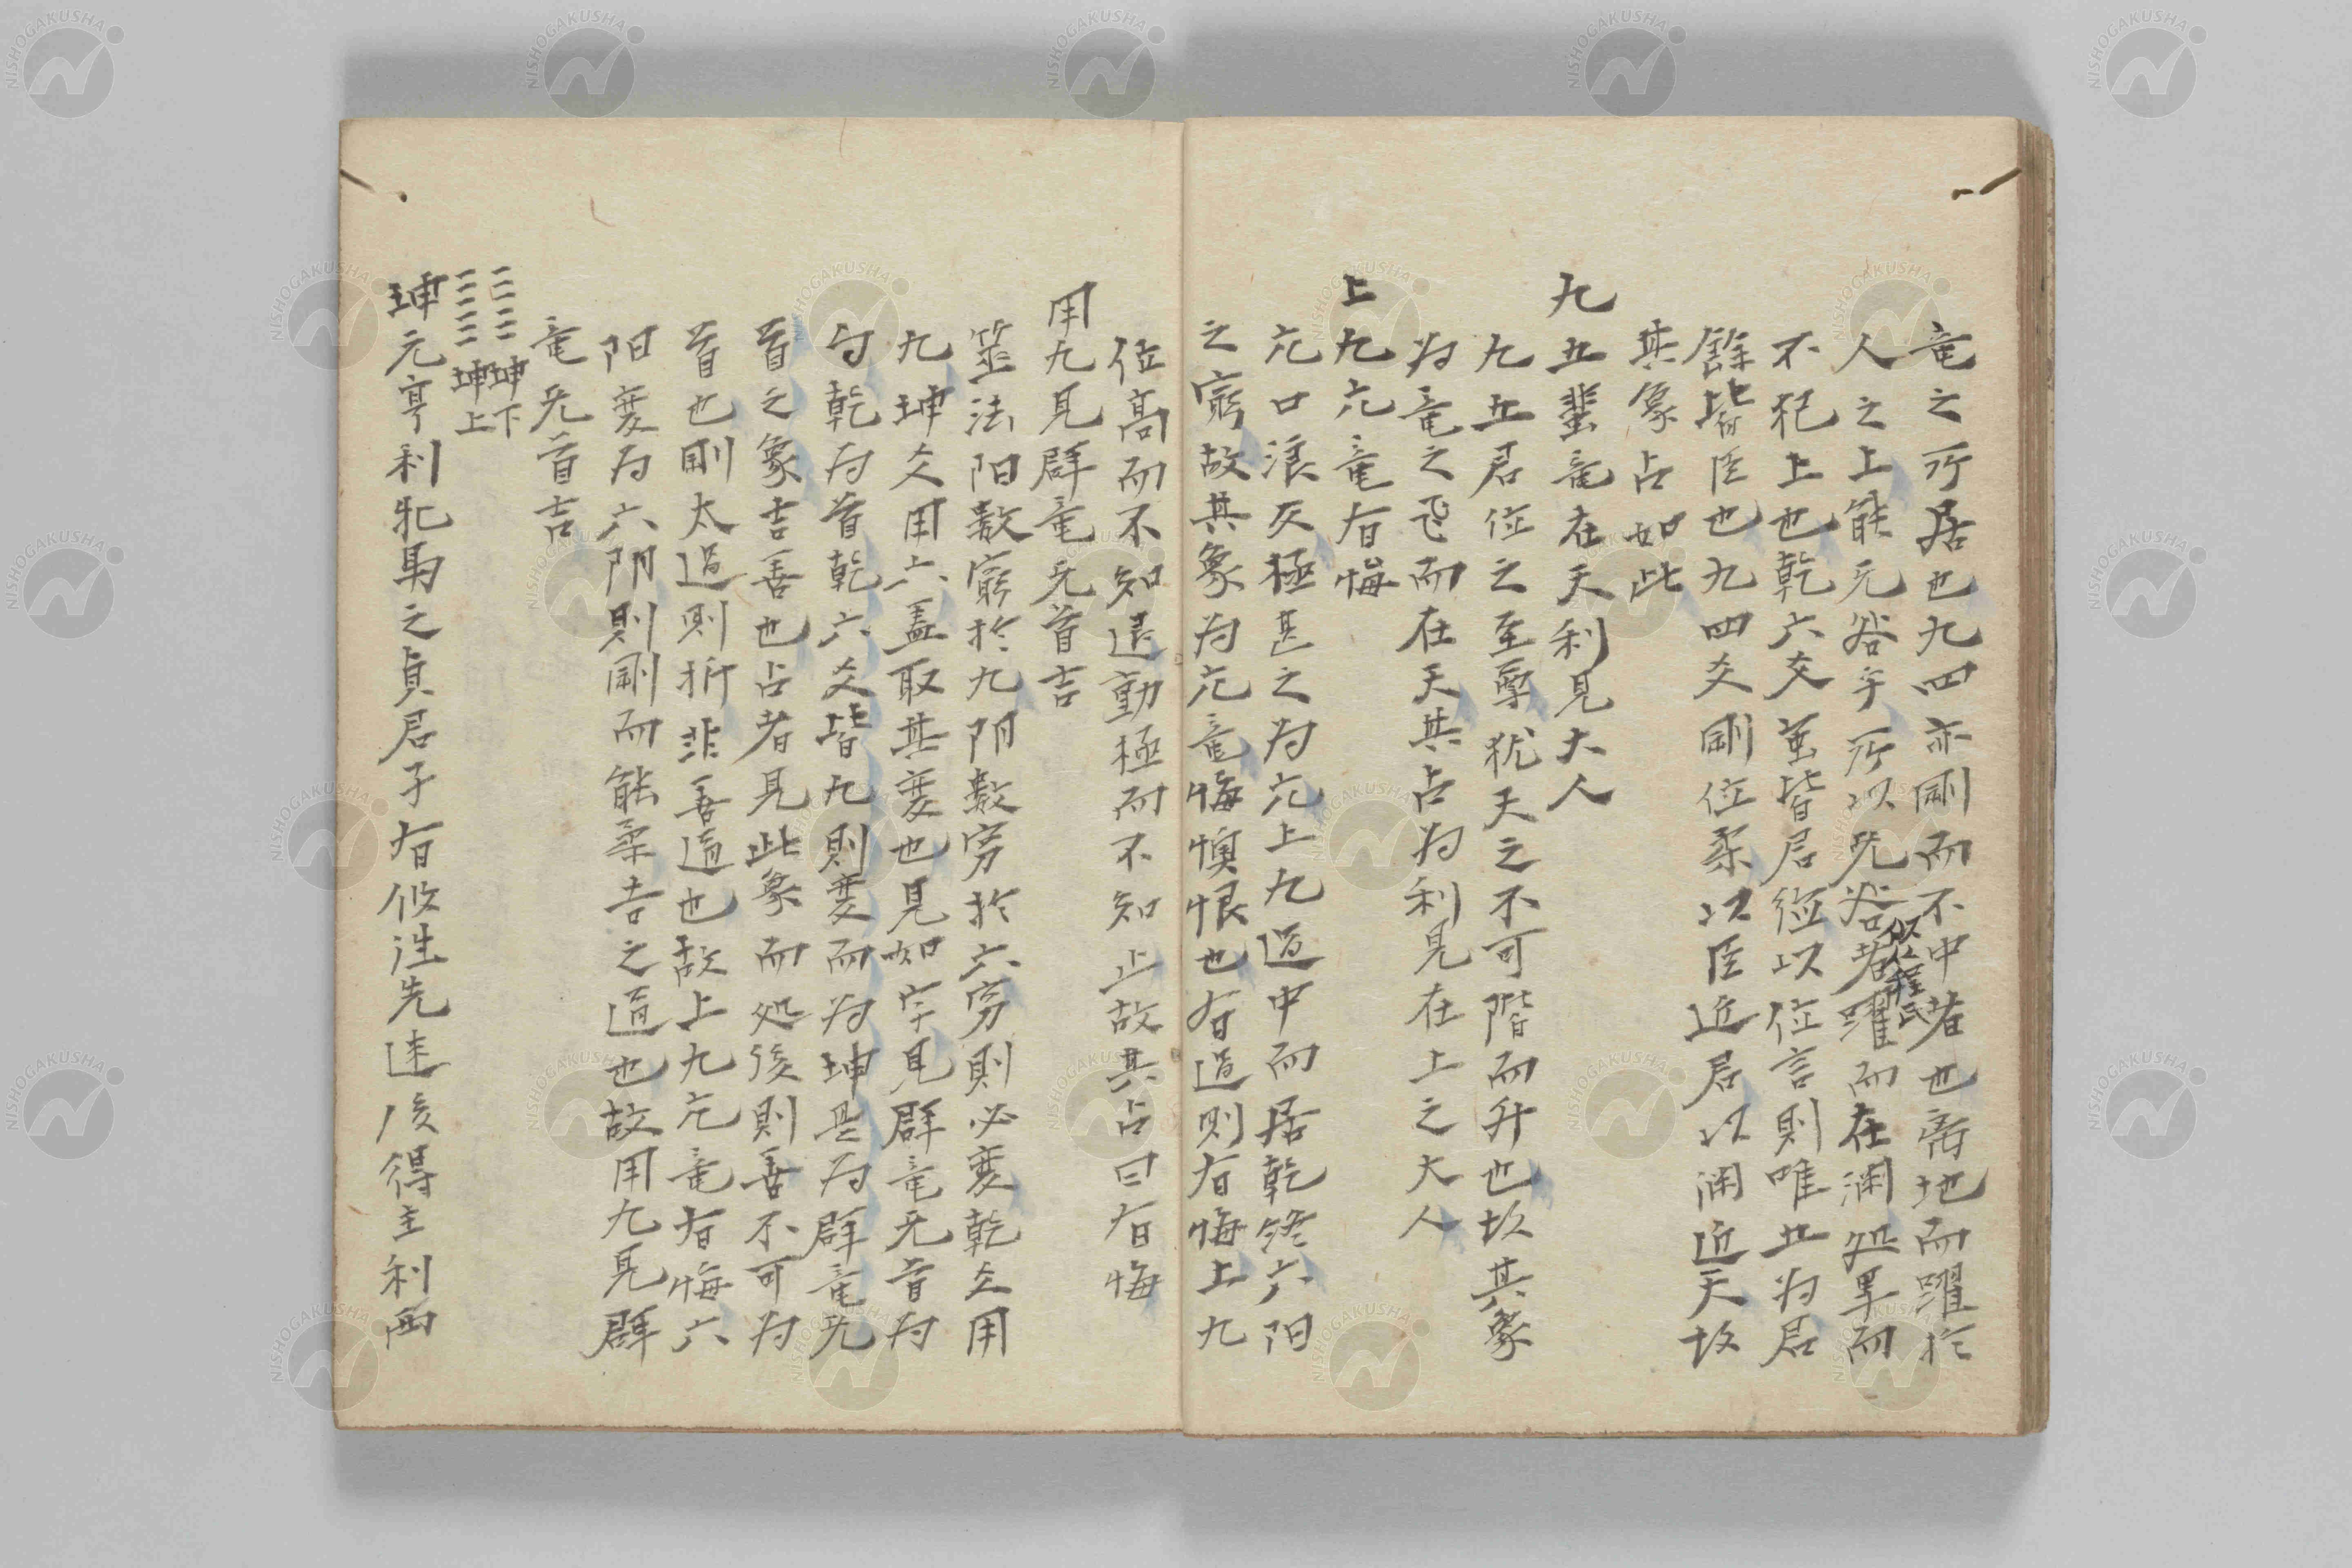 竜之所居也九四亦剛而不中者也離地而躍於
人之上能无咎乎所以无咎者躍而在渊処罕而
似仕程氏
不犯上也乾六爻虽皆君位以位言則唯五为君
餘皆臣也九四爻剛位柔以臣近君以渊近天故
其象占如此
九五蜚竜在天利見大人
九五君位之至尊犹天之不可階而升也故其象
为竜之飞而在天其占为利見在上之大人
上九亢竜有悔
亢口浪反極甚之为亢上九過中而居乾終六阳
之窮故其象为亢竜悔懊恨也有過则有悔上九
位高而不知退動極而不知止故其占曰有悔
用九見群竜无首吉
筮法阳数窮於九阴数穷於六穷則必变乾爻用
九坤爻用六盖取其变也見如字見群竜无首为
句乾为首乾六爻皆九則变而为坤是为群竜无
首之象吉善也占者見此象而処後則善不可为
首也剛太過则折非吾道也故上九亢竜有悔六
阳变为六阴則剛而能柔吉之道也故用九見群
竜无首吉
坤下
坤上
坤元亨利牝馬之貞君子有攸往先迷後得主利西